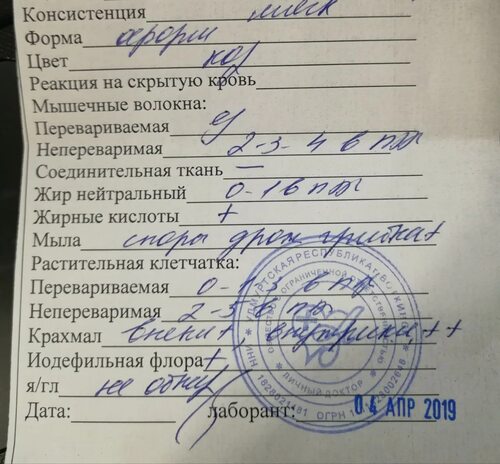 Консистенция мягк
Форма оформ
Цвет кор
Реакция на скрытую кровь
Мышечные волокна:
Перевариваемая ед
Непереваримая 2-3-4 в п/з
Соединительная ткань —
Жир нейтральный 0-1 в п/з
Жирные кислоты +
Мыла споры дрож грибка+
Растительная клетчатка:
Перевариваемая 0-1-3 в п/з
Непереваримая 2-3 в п/з
Крахмал внекл+ внутрикл++
Иодефильная флора +
я/гл не обнар
Дата: лаборант: 04 АПР 2019
УДМУРТСКАЯ РЕСПУБЛИКА
ЛИЧНЫЙ ДОКТОР